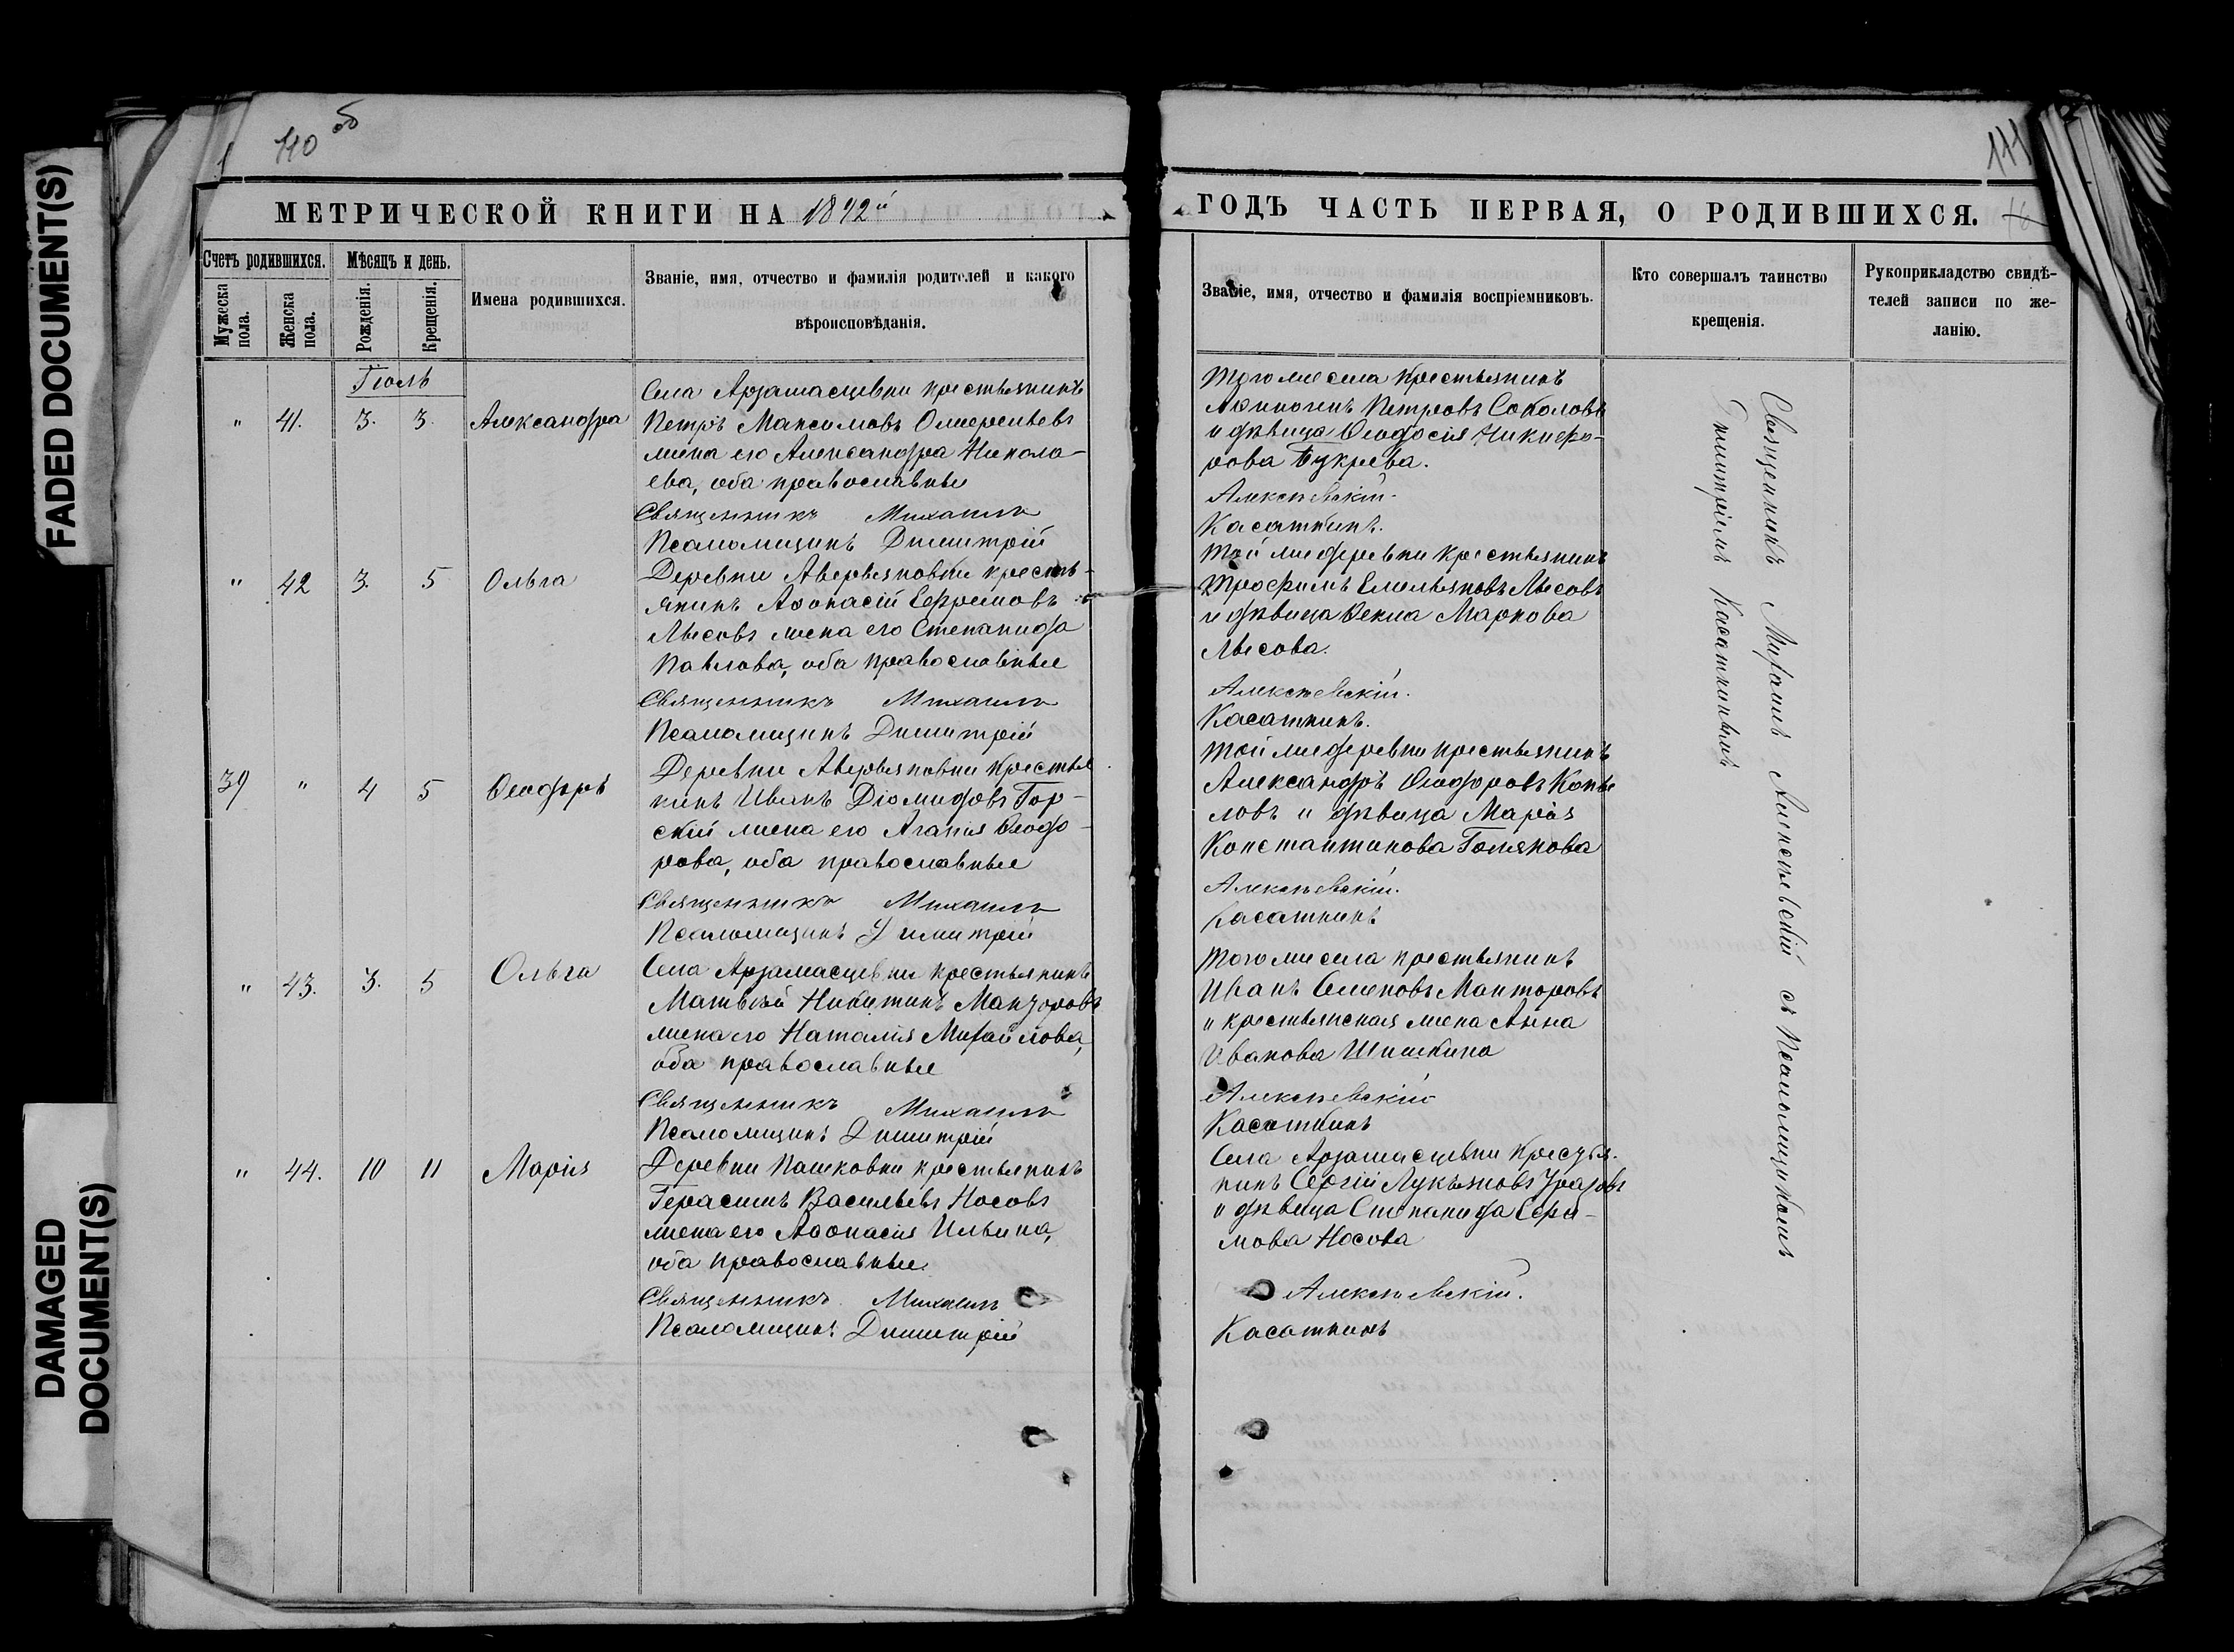 FADED DOCUMENT(S)
DAMAGED
DOCUMENT(S)
110 об
111
МЕТРИЧЕСКОЙ КНИГИ НА 1892й
ГОДЪ ЧАСТЬ ПЕРВАЯ, О РОДИВШИХСЯ.
Счетъ родившихся.
Мужеска пола.
Женска пола.
Мѣсяцъ и день.
Рожденія.
Крещенія.
Имена родившихся.
Званіе, имя, отчество и фамилія родителей и какого
вѣроисповѣданія.
Званіе, имя, отчество и фамилія воспріемниковъ.
Кто совершалъ таинство
крещенія.
Рукоприкладство свидѣ-
телей записи по же-
ланію.
Іюль
" 41. 3. 3. Александра
Села Арзамасцевки крестьянинъ
Петръ Максимовъ
жена его Александра Никола-
ева, оба православные
Священникъ Михаилъ
Псаломщикъ Димитрій
Того же села крестьянинъ
Аѳиногенъ Петровъ Соколовъ
и дѣвица Ѳеодосія Никифо-
рова Букрева.
Алексѣевскій.
Касаткинъ.
" 42 3. 5 Ольга
Деревни Аверьяновки кресть-
янинъ Аѳонасій Ефремовъ
Лысовъ жена его Степанида
Павлова, оба православные
Священникъ Михаилъ
Псаломщикъ Димитрій
Той же деревни крестьянинъ
Трофимъ Емельяновъ Лысовъ
и дѣвица Ѳекла Маркова
Лысова.
Алексѣевскій.
Касаткинъ.
39 " 4 5 Ѳеодоръ
Деревни Аверьяновки крестья
нинъ Иванъ Діомидовъ Гор-
скій жена его Агапія Ѳеодо-
рова, оба православные
Священникъ Михаилъ
Псаломщикъ Димитрій
Той же деревни крестьянинъ
Александръ Ѳеодоровъ Копы
ловъ и дѣвица Марія
Константинова
Алексѣевскій.
Касаткинъ
" 43. 3. 5 Ольга
Села Арзамасцевки крестьянинъ
Матвѣй Никитинъ Манторовъ
жена его Наталія Михайлова,
оба православные
Священникъ Михаилъ
Псаломщикъ Димитрій
Того же села крестьянинъ
Иванъ Семеновъ Манторовъ
и крестьянская жена Анна
Иванова Шишкина
Алексѣевскій
Касаткинъ
" 44. 10 11 Марія
Деревни Пашковки крестьянинъ
Герасимъ Васильевъ Носовъ
жена его Аѳонасія Ильина,
оба православные.
Священникъ Михаилъ
Псаломщикъ Димитрій
Села Арзамасцевки крестья-
нинъ Сергій Лукьяновъ
и дѣвица Степанида Сера-
мова Носова
Алексѣевскій.
Касаткинъ
Священникъ Михаилъ Алексѣевскій съ Псаломщикомъ
Димитріемъ Касаткинымъ